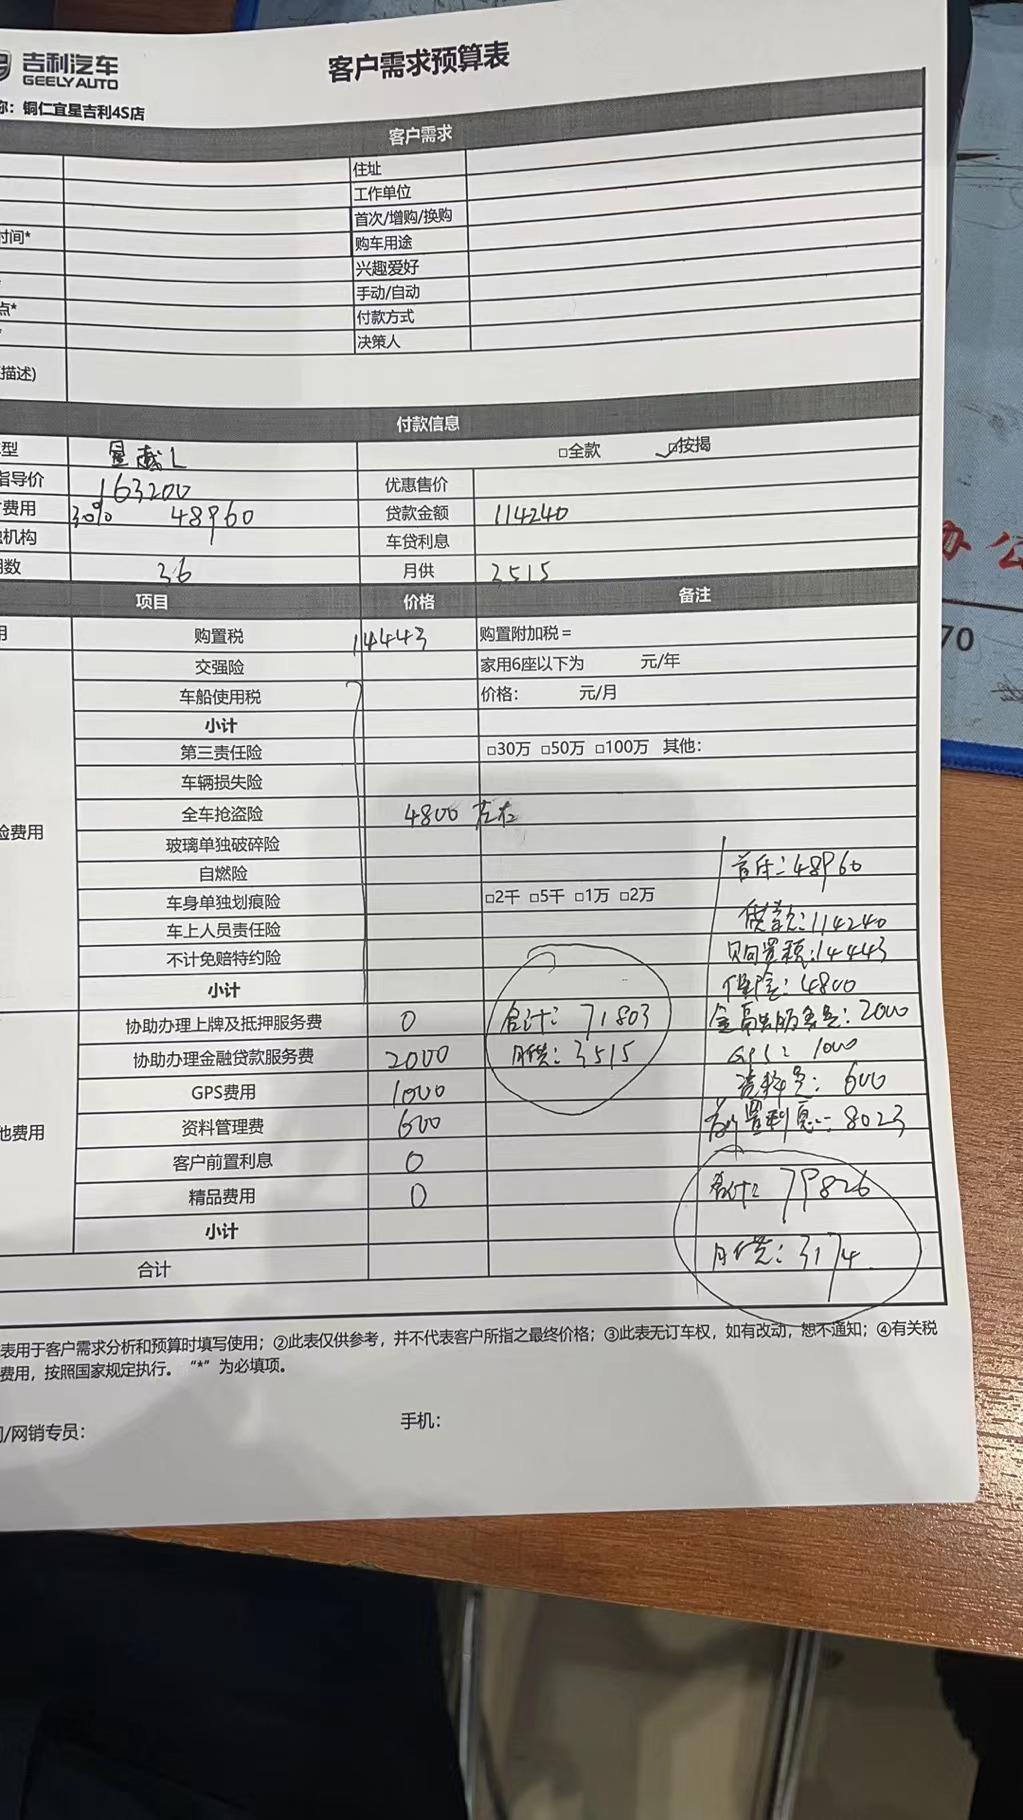 吉利汽车
GEELY AUTO
客户需求预算表
你: 铜仁宜星吉利4S店
客户需求
住址
工作单位
首次/增购/换购
时间* 购车用途
兴趣爱好
手动/自动
点* 付款方式
决策人
描述)
付款信息
型 星越L □全款 ☑按揭
指导价 163200 优惠售价
费用 30% 48960 贷款金额 114240
机构 车贷利息
期数 36 月供 3515
项目 价格 备注
购置税 14443 购置附加税=
交强险 家用6座以下为 元/年
车船使用税 价格: 元/月
小计
第三责任险 □30万 □50万 □100万 其他:
车辆损失险
全车抢盗险 4800 左右
险费用 玻璃单独破碎险
自燃险 首付:48960
车身单独划痕险 □2千 □5千 □1万 □2万
车上人员责任险 贷款:114240
不计免赔特约险 购置税:14443
小计 保险:4800
协助办理上牌及抵押服务费 0 合计:71803 金融服务费:2000
协助办理金融贷款服务费 2000 月供:3515 GPS:1000
GPS费用 1000 资料费:600
他费用 资料管理费 600 前置利息:8023
客户前置利息 0
精品费用 0 合计:79826
小计
合计 月供:3174
表用于客户需求分析和预算时填写使用；②此表仅供参考，并不代表客户所指之最终价格；③此表无订车权，如有改动，恕不通知；④有关税
费用，按照国家规定执行。“*”为必填项。
/网销专员: 手机:
办公
70